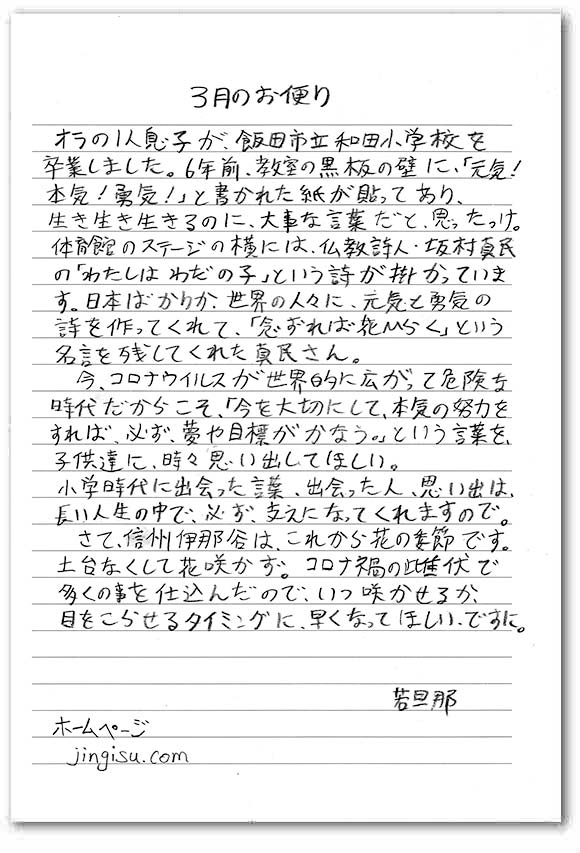 3月のお便り
オラの1人息子が、飯田市立和田小学校を
卒業しました。6年前、教室の黒板の壁に、「元気！
本気！勇気！」と書かれた紙が貼ってあり、
生き生き生きるのに、大事な言葉だと、思ったっけ。
体育館のステージの横には、仏教詩人・坂村真民
の「わたしは わだの子」という詩が掛かっていま
す。日本ばかりか、世界の人々に、元気と勇気の
詩を作ってくれて、「念ずれば花ひらく」という
名言を残してくれた真民さん。
今、コロナウイルスが世界的に広がって危険な
時代だからこそ、「今を大切にして、本気の努力を
すれば、必ず、夢や目標がかなう。」という言葉を、
子供達に、時々思い出してほしい。
小学時代に出会った言葉、出会った人、思い出は、
長い人生の中で、必ず、支えになってくれますので。
さて、信州伊那谷は、これから花の季節です。
土台なくして花咲かず。コロナ禍の雌伏で
多くの事を仕込んだので、いつ咲かせるか、
目をこらせるタイミングに、早くなってほしいですに。
若旦那
ホームページ
jingisu.com